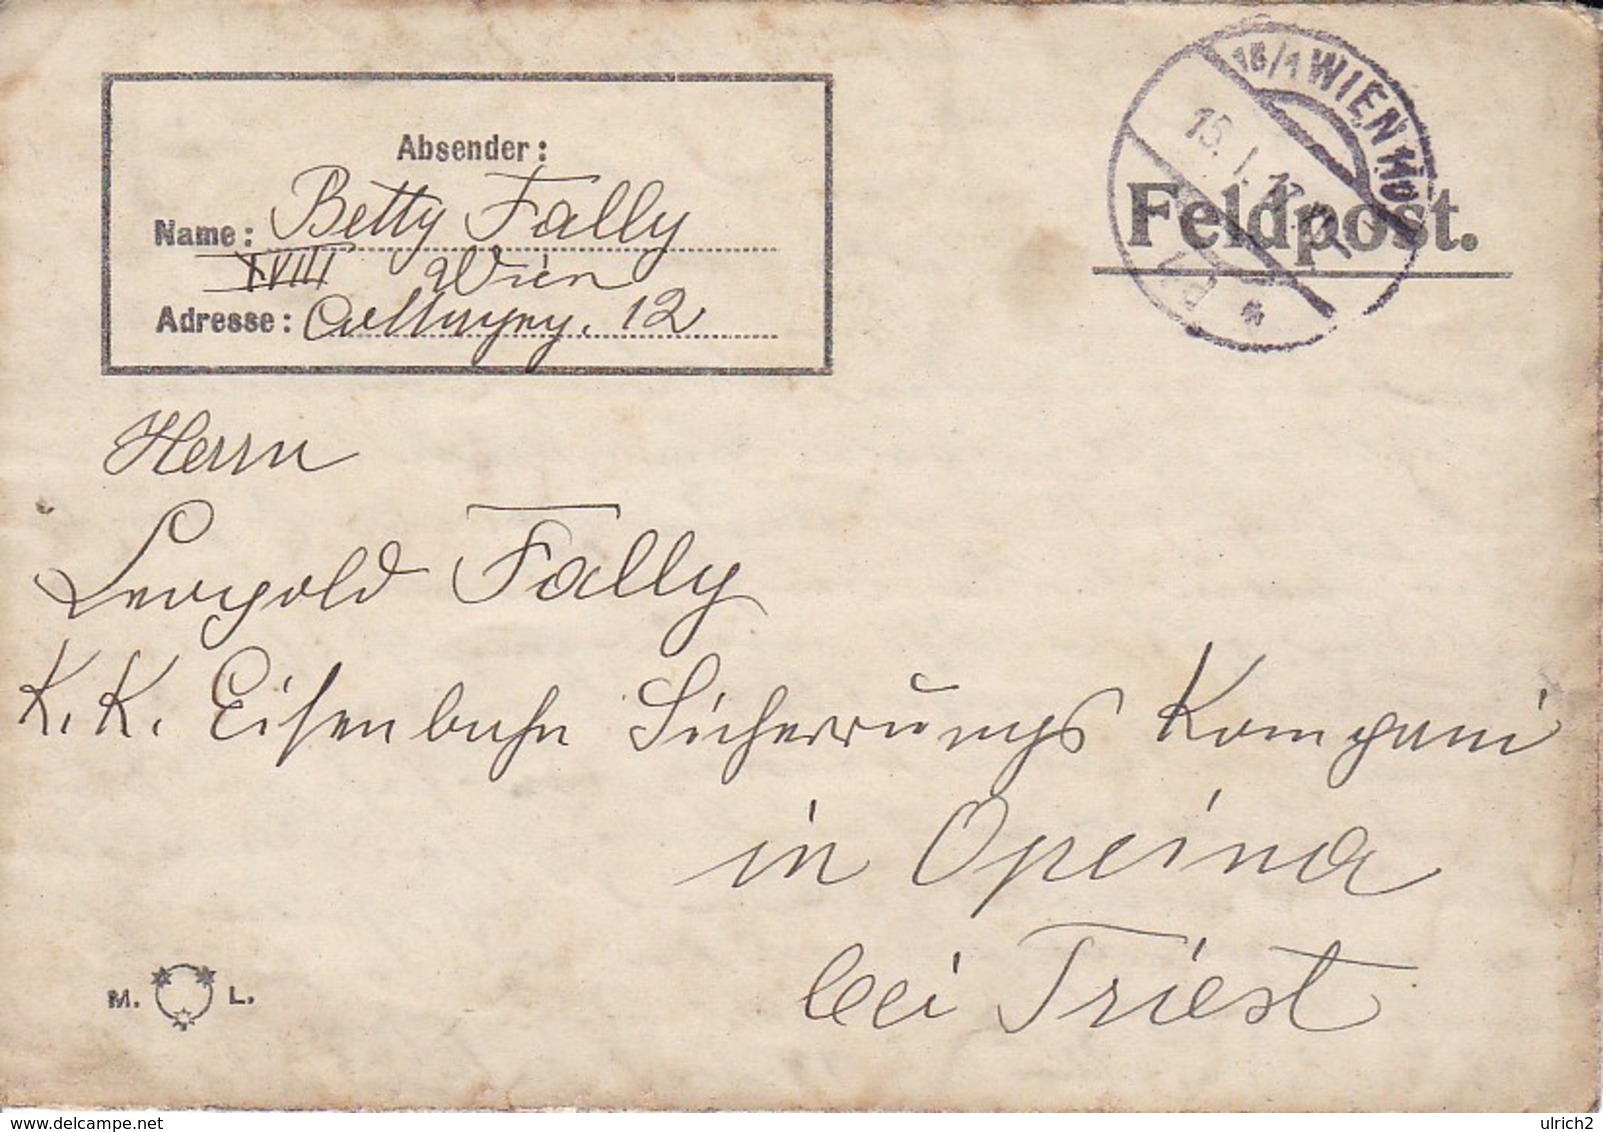 Absender:
Name: Betty Fally
XVIII Wien
Adresse: 12
Feldpost.
18/1 WIEN
15. I.
*
Herrn
Leopold Fally
K. K. Eisenbahn Sicherrungs Kompani
in Opcina
bei Triest
M. L.
delcampe.net
ulrich2